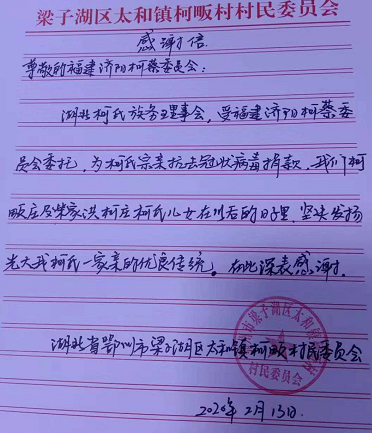 梁子湖区太和镇柯畈村村民委员会
感谢信
尊敬的福建济阳柯蔡委员会：
湖北柯氏族务理事会，受福建济阳柯蔡委
员会委托，为柯氏宗亲抗击冠状病毒捐款，我们柯
畈庄及柴家洪柯庄柯氏儿女在以后的日子里，坚决发扬
光大我柯氏一家亲的优良传统。在此深表感谢！
湖北省鄂州市梁子湖区太和镇柯畈村民委员会
市梁子湖区太和
村民委员会
2020年2月13日.